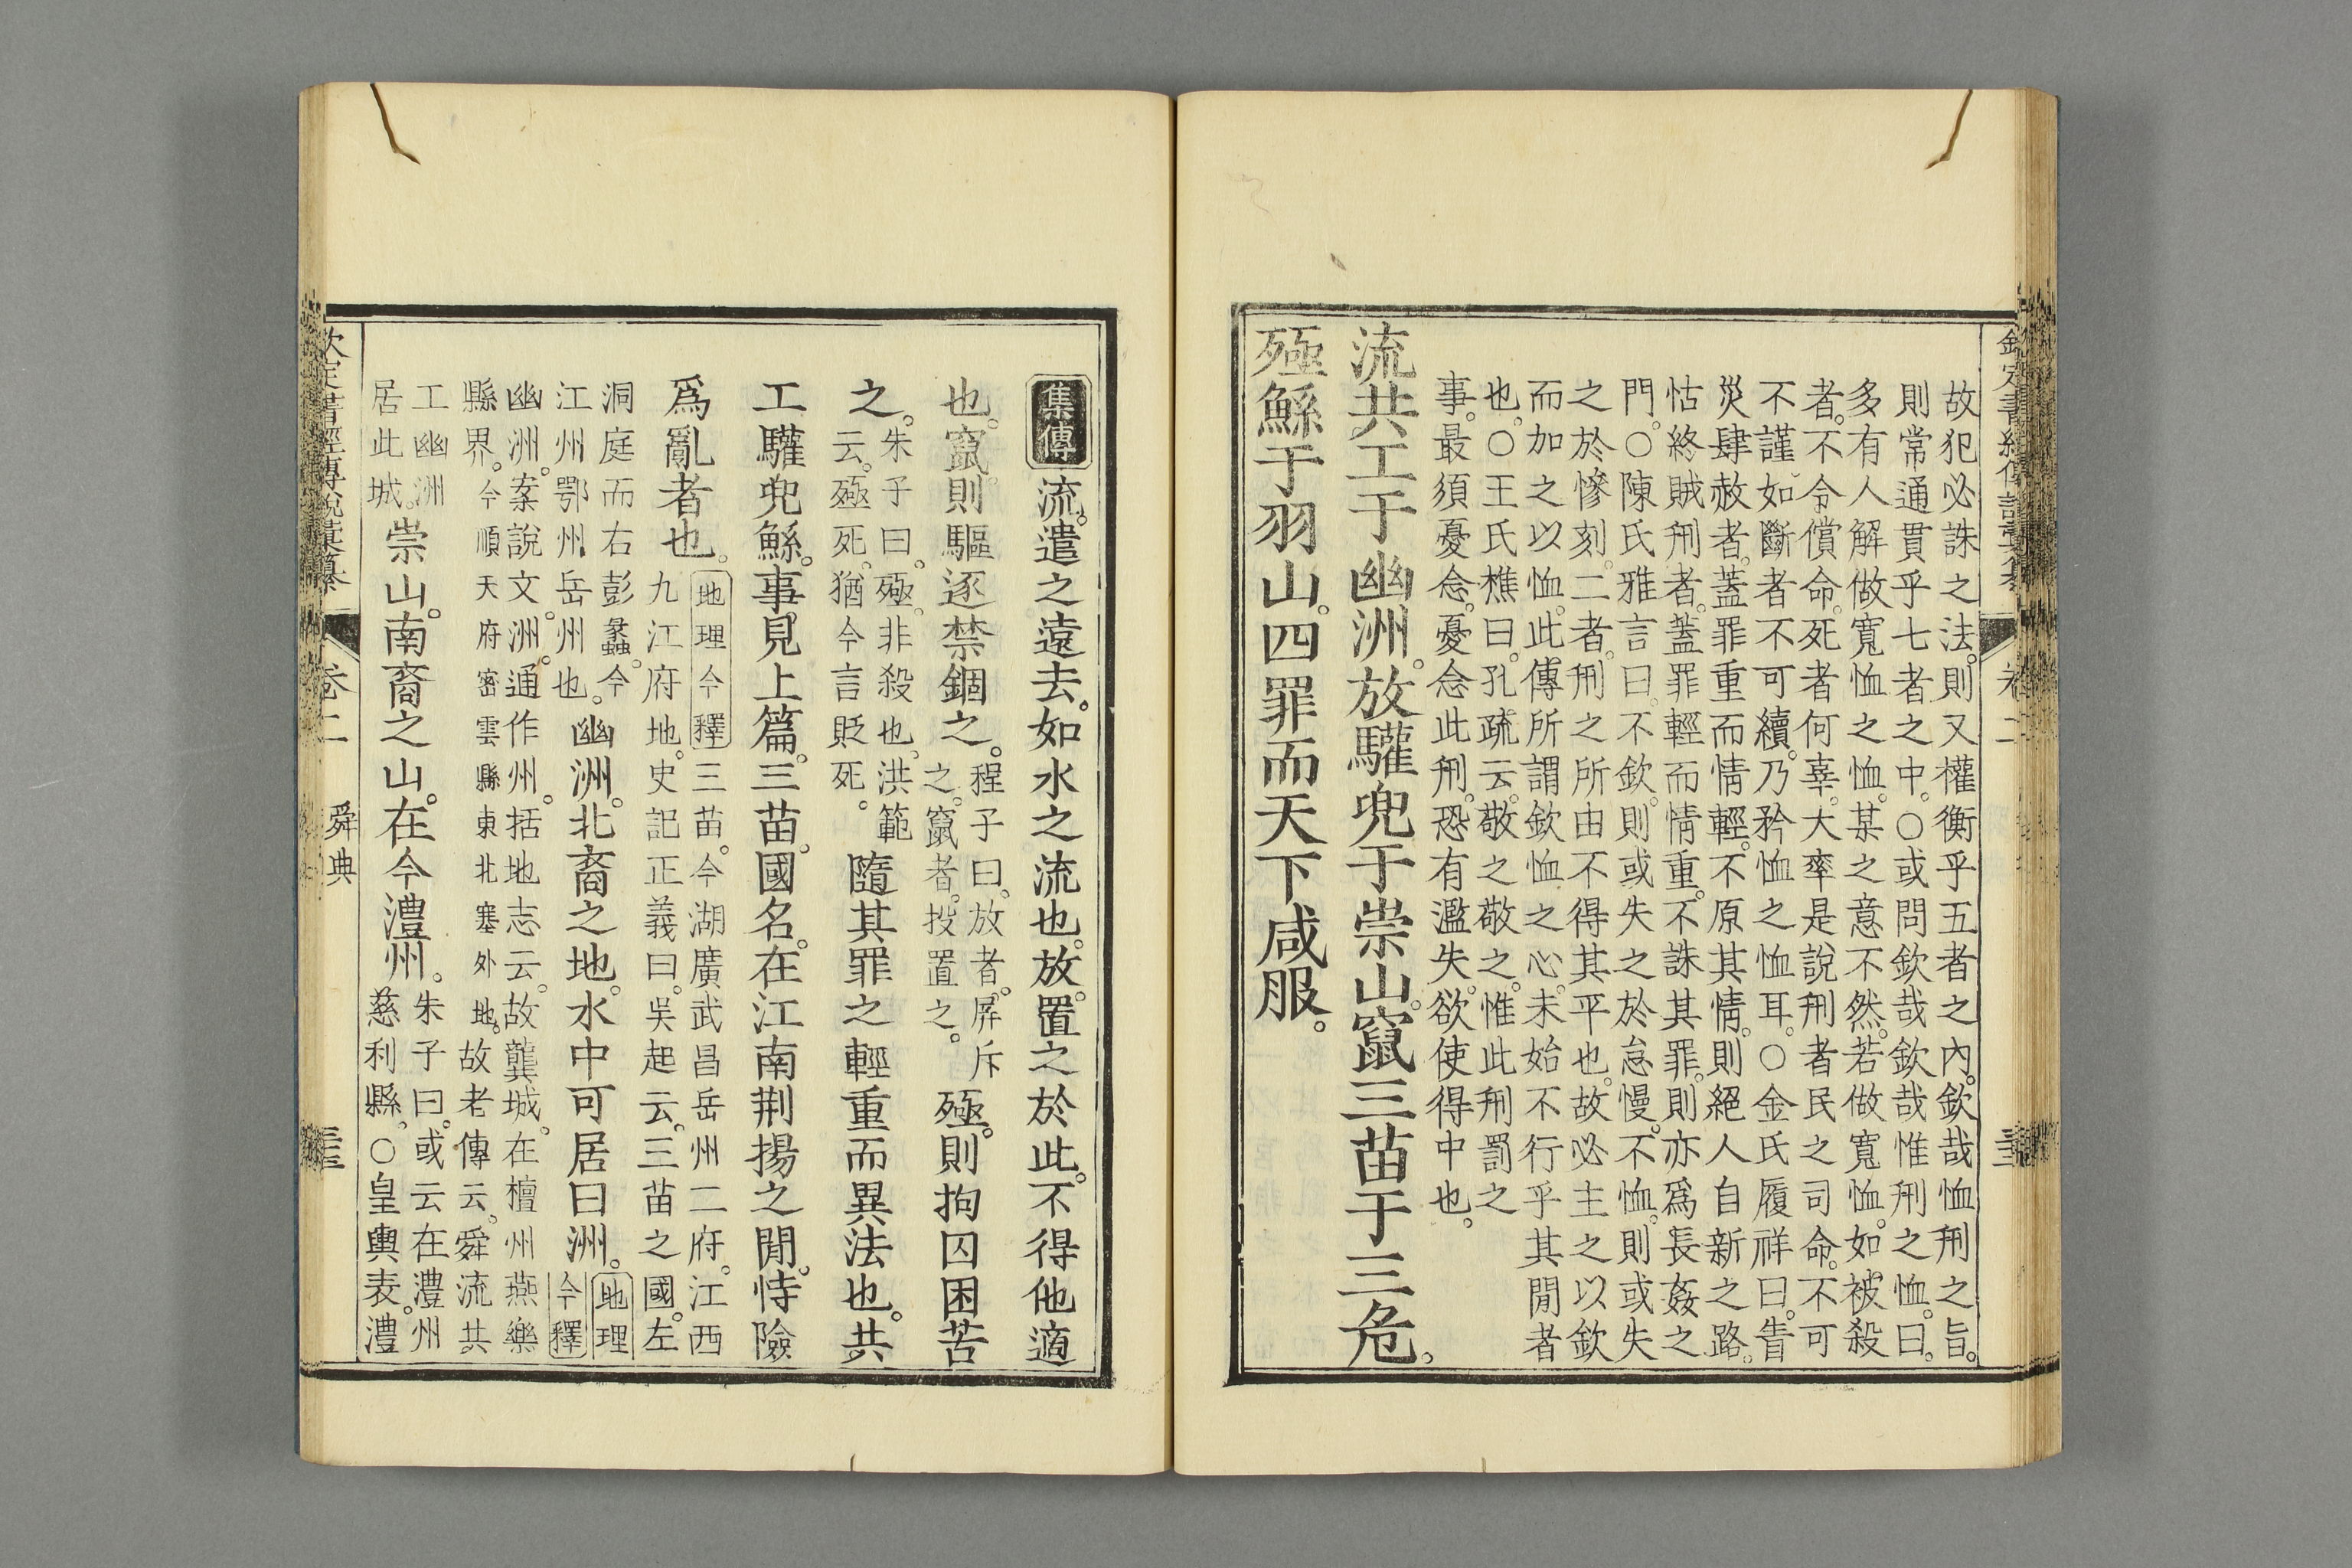 欽定書經傳說彙纂 卷二
故犯必誅之法。則又權衡乎五者之內。欽哉恤刑之旨。
則常通貫乎七者之中。○或問欽哉欽哉惟刑之恤。曰。
多有人解做寬恤之恤。某之意不然。若做寬恤。如被殺
者。不令償命。死者何辜。大率是說刑者民之司命。不可
不謹。如斷者不可續。乃矜恤之恤耳。○金氏履祥曰。眚
災肆赦者。蓋罪重而情輕。不原其情。則絕人自新之路。
怙終賊刑者。蓋罪輕而情重。不誅其罪。則亦爲長姦之
門。○陳氏雅言曰。不欽。則或失之於怠慢。不恤。則或失
之於慘刻。二者。刑之所由不得其平也。故必主之以欽
而加之以恤。此傳所謂欽恤之心。未始不行乎其閒者
也。○王氏樵曰。孔疏云。敬之敬之。惟此刑罰之
事。最須憂念。憂念此刑。恐有濫失。欲使得中也。
流共工于幽洲。放驩兜于崇山。竄三苗于三危。
殛鯀于羽山。四罪而天下咸服。
集傳 流。遣之遠去。如水之流也。放。置之於此。不得他適
也。竄。則驅逐禁錮之。程子曰。放者。屏斥之。竄者。投置之。殛。則拘囚困苦
之。朱子曰。殛。非殺也。洪範云。殛死。猶今言貶死。隨其罪之輕重而異法也。共
工驩兜鯀。事見上篇。三苗。國名。在江南荆揚之閒。恃險
爲亂者也。地理今釋 三苗。今湖廣武昌岳州二府。江西九江府地。史記正義曰。吳起云。三苗之國。左
洞庭而右彭蠡。今江州鄂州岳州也。幽洲。北裔之地。水中可居曰洲。地理今釋
幽洲。案說文。洲。通作州。括地志云。故龔城。在檀州燕樂縣界。今順天府密雲縣東北塞外地。故老傳云。舜流共
工幽洲居此城。崇山。南裔之山。在今澧州。朱子曰。或云在澧州慈利縣。○皇輿表。澧
欽定書經傳說彙纂 卷二 舜典